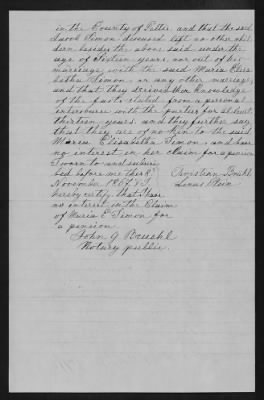 in the County of Potter and that the said
Jacob Simon deceased left no other chil
dren besides the above said under the
age of Sixteen years, nor out of his
marriage with the said Maria Eliza
betha Simon, or any other marriage
and that they derived their knowledge
of the facts stated from a personal
intercourse with the parties for at least
thirteen years, and they further say
that they are of no Kin to the said
Maria Elisabetha Simon, and have
no interest in her claim for a pension
Sworn to and subscri
bed before me the 
November 186 I Christian
hereby certify that I have
no interest in the Claim
of Maria E Simon for
a pension
John G
Notary public.